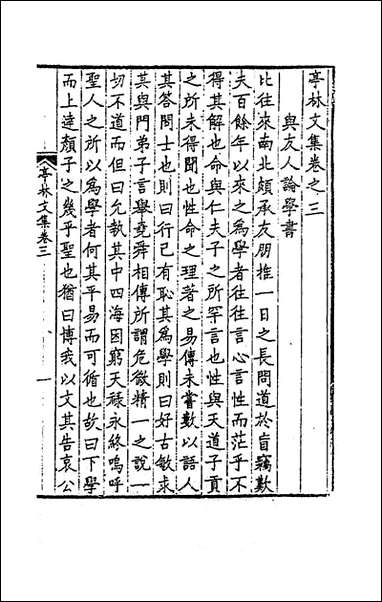 亭林文集卷之三
與友人論學書
比往來南北頗承友朋推一日之長問道於盲竊歎
夫百餘年以來之爲學者往往言心言性而茫乎不
得其解也命與仁夫子之所罕言也性與天道子貢
之所未得聞也性命之理著之易傳未嘗數以語人
其答問士也則曰行己有恥其爲學則曰好古敏求
其與門弟子言舉堯舜相傳所謂危微精一之說一
切不道而但曰允執其中四海困窮天祿永終嗚呼
聖人之所以爲學者何其平易而可循也故曰下學
而上達顏子之幾乎聖也猶曰博我以文其告哀公
亭林文集卷三
一